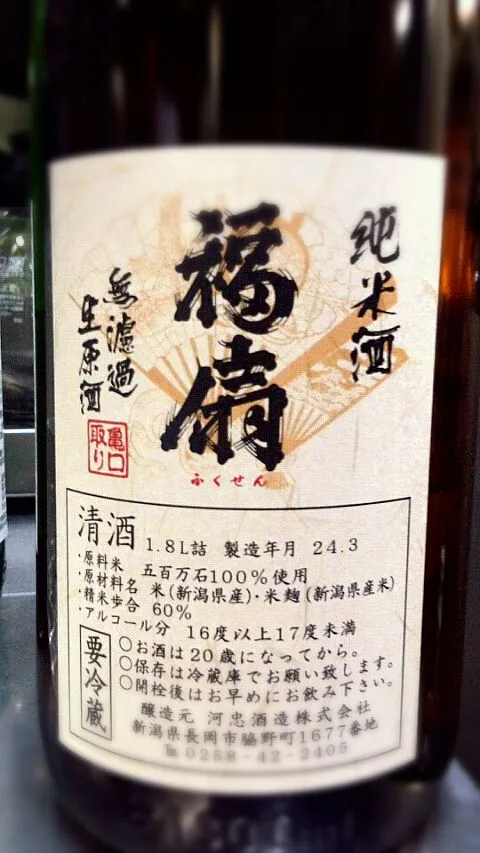 純米酒
福扇
ふくせん
無濾過
生原酒
亀口
取り
清酒 1.8L詰 製造年月 24.3
・原料米 五百万石100%使用
・原材料名 米(新潟県産)・米麹(新潟県産米)
・精米歩合 60%
・アルコール分 16度以上17度未満
要冷蔵
○お酒は20歳になってから。
○保存は冷蔵庫でお願い致します。
○開栓後はお早めにお飲み下さい。
醸造元 河忠酒造株式会社
新潟県長岡市脇野町1677番地
℡0258-42-2405